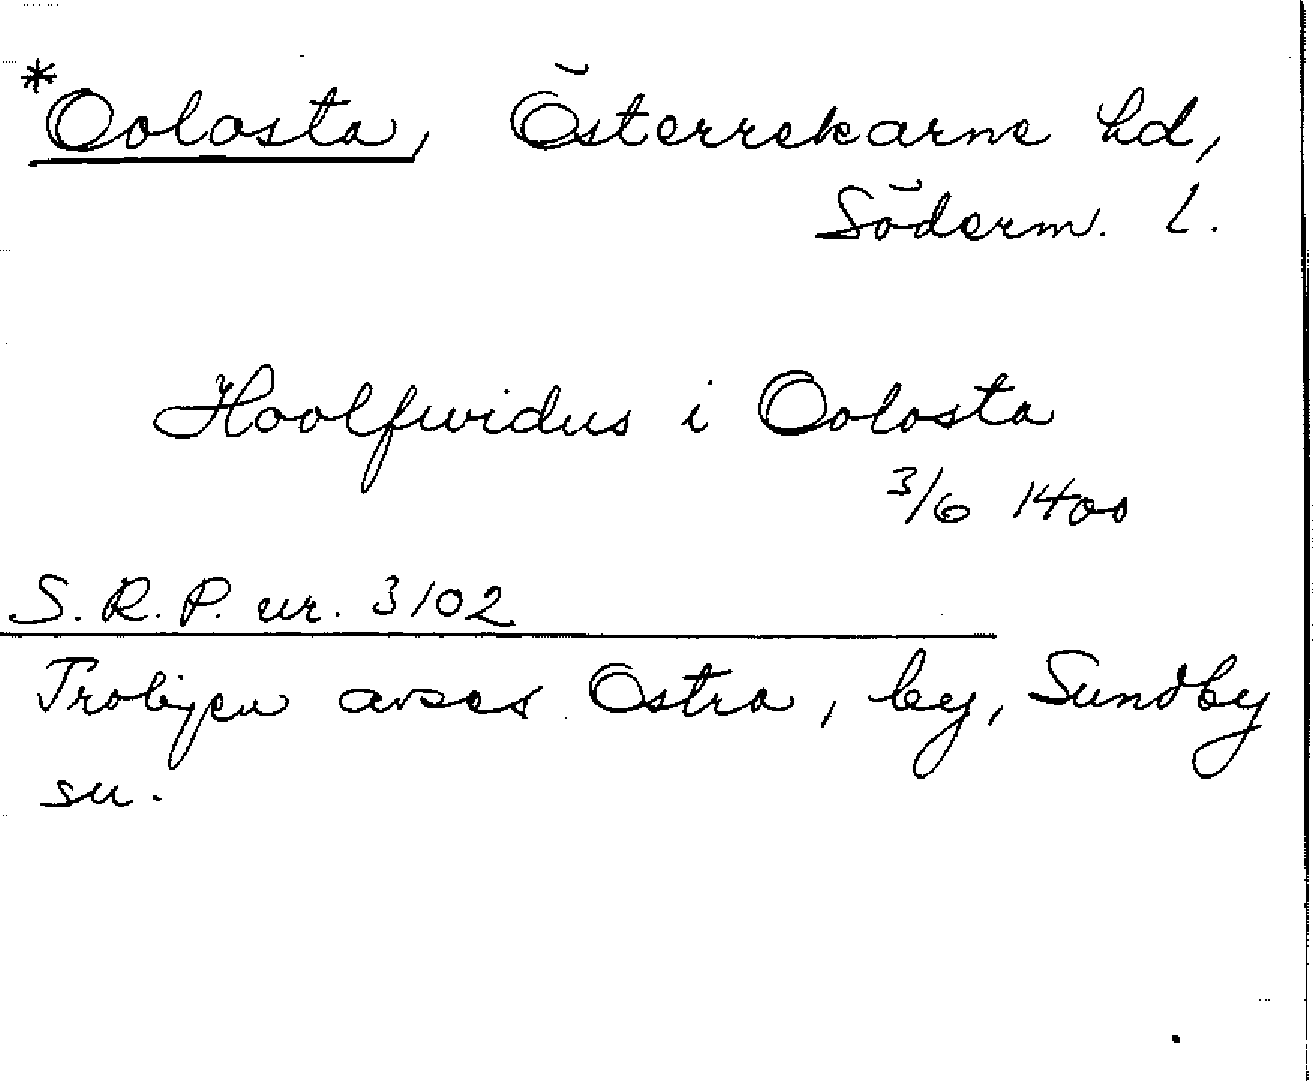 *Oolosta, Österrekarne hd,
Söderm. l.
Hoolfwidus i Oolosta
3/6 1400
S. R. P. nr. 3102
Troligen avses Ostra, by, Sundby
sn.